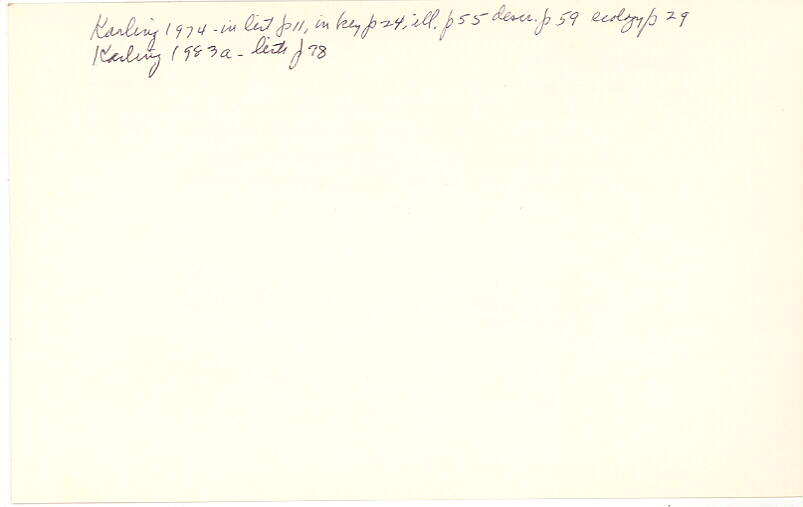 Karling 1974 - in list p 11, in key p 24, ill. p 55 descr. p 59 ecology p 29
Karling 1983a - lists p 78